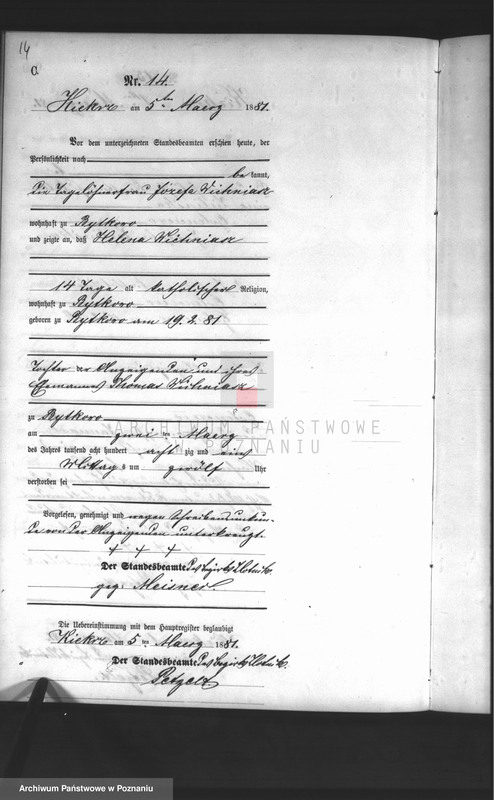 14
a
Nr. 14.
Kiekrz am 5ten Maerz 1881.
Vor dem unterzeichneten Standesbeamten erschien heute, der
Persönlichkeit nach
be kannt,
die Tagelöhnerfrau Józefa Wichniarz
wohnhaft zu Rytkoro
und zeigte an, daß Helena Wichniarz
14 Tage alt katholischer Religion,
wohnhaft zu Rytkoro
geboren zu Rytkoro am 19. 2. 81
Tochter der Anzeigenden und ihres
Ehemannes Thomas Wichniarz
zu Rytkoro
am zwei ten Maerz
des Jahres tausend acht hundert acht zig und eins
Mittag s um zwölf Uhr
verstorben sei
Vorgelesen, genehmigt und wegen Schreibensunkun-
de von der Anzeigenden unterkreuzt.
+ + +
Der Standesbeamte des Bezirks Zlotnik.
gez. Meisner.
Die Uebereinstimmung mit dem Hauptregister beglaubigt
Kiekrz am 5 ten Maerz 1881.
Der Standesbeamte des Bezirks Zlotnik.
ARCHIWUM PAŃSTWOWE
W POZNANIU
Archiwum Państwowe w Poznaniu